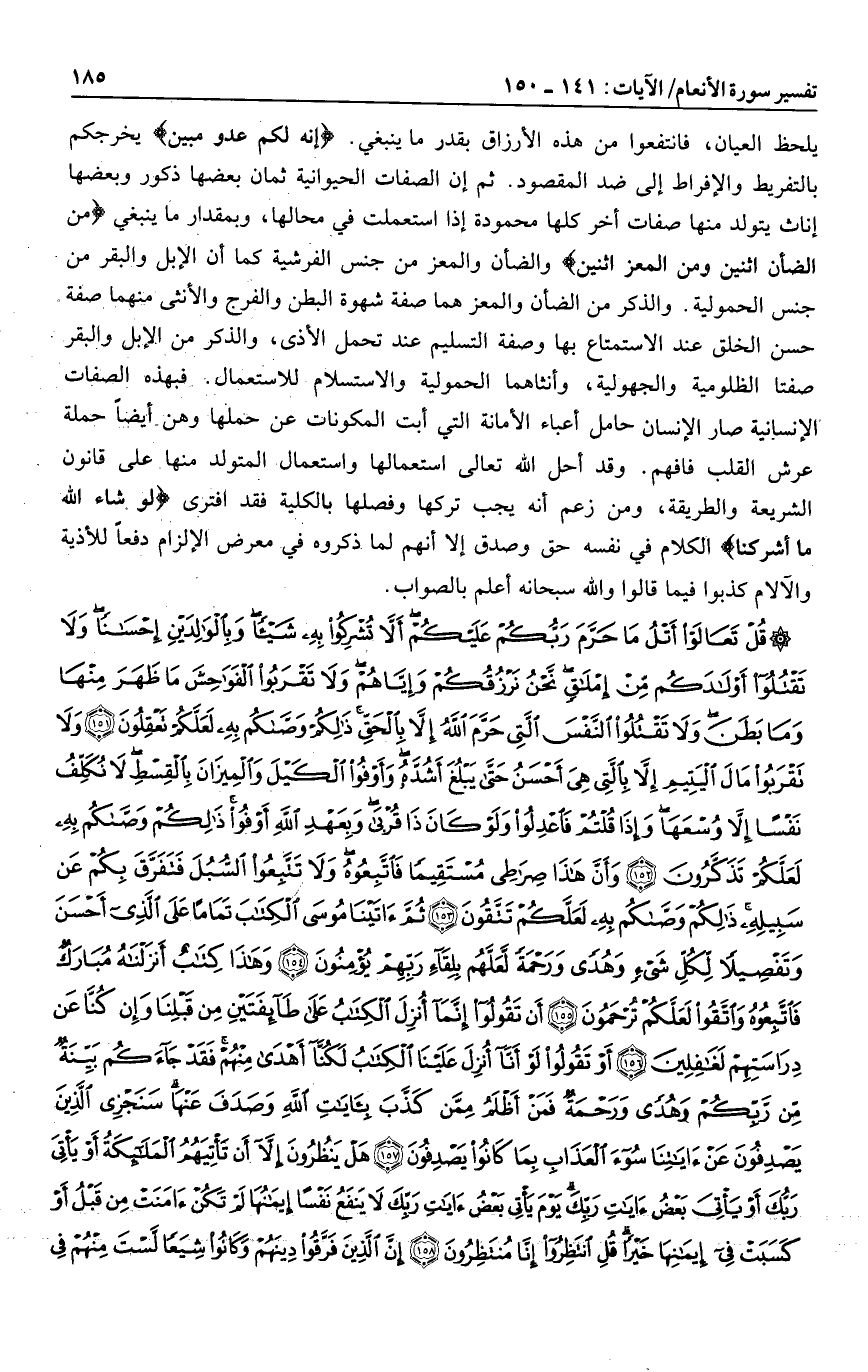 تفسير سورة الأنعام/ الآيات: ١٤١ - ١٥٠ ١٨٥
يلحظ العيان، فانتفعوا من هذه الأرزاق بقدر ما ينبغي. ﴿إنه لكم عدو مبين﴾ يخرجكم
بالتفريط والإفراط إلى ضد المقصود. ثم إن الصفات الحيوانية ثمان بعضها ذكور وبعضها
إناث يتولد منها صفات أخر كلها محمودة إذا استعملت في محالها، وبمقدار ما ينبغي ﴿من
الضأن اثنين ومن المعز اثنين﴾ والضأن والمعز من جنس الفرشية كما أن الإبل والبقر من
جنس الحمولية. والذكر من الضأن والمعز هما صفة شهوة البطن والفرج والأنثى منهما صفة
حسن الخلق عند الاستمتاع بها وصفة التسليم عند تحمل الأذى، والذكر من الإبل والبقر
صفتا الظلومية والجهولية، وأنثاهما الحمولية والاستسلام للاستعمال. فبهذه الصفات
الإنسانية صار الإنسان حامل أعباء الأمانة التي أبت المكونات عن حملها وهن أيضاً حملة
عرش القلب فافهم. وقد أحل الله تعالى استعمالها واستعمال المتولد منها على قانون
الشريعة والطريقة، ومن زعم أنه يجب تركها وفصلها بالكلية فقد افترى ﴿لو شاء الله
ما أشركنا﴾ الكلام في نفسه حق وصدق إلا أنهم لما ذكروه في معرض الإلزام دفعاً للأذية
والآلام كذبوا فيما قالوا والله سبحانه أعلم بالصواب.
۞ قُلْ تَعَالَوْا۟ أَتْلُ مَا حَرَّمَ رَبُّكُمْ عَلَيْكُمْ ۖ أَلَّا تُشْرِكُوا۟ بِهِۦ شَيْـًٔا ۖ وَبِٱلْوَٰلِدَيْنِ إِحْسَٰنًا ۖ وَلَا
تَقْتُلُوٓا۟ أَوْلَٰدَكُم مِّنْ إِمْلَٰقٍ ۖ نَّحْنُ نَرْزُقُكُمْ وَإِيَّاهُمْ ۖ وَلَا تَقْرَبُوا۟ ٱلْفَوَٰحِشَ مَا ظَهَرَ مِنْهَا
وَمَا بَطَنَ ۖ وَلَا تَقْتُلُوا۟ ٱلنَّفْسَ ٱلَّتِى حَرَّمَ ٱللَّهُ إِلَّا بِٱلْحَقِّ ۚ ذَٰلِكُمْ وَصَّىٰكُم بِهِۦ لَعَلَّكُمْ تَعْقِلُونَ ﴿١٥١﴾ وَلَا
تَقْرَبُوا۟ مَالَ ٱلْيَتِيمِ إِلَّا بِٱلَّتِى هِىَ أَحْسَنُ حَتَّىٰ يَبْلُغَ أَشُدَّهُۥ ۖ وَأَوْفُوا۟ ٱلْكَيْلَ وَٱلْمِيزَانَ بِٱلْقِسْطِ ۖ لَا نُكَلِّفُ
نَفْسًا إِلَّا وُسْعَهَا ۖ وَإِذَا قُلْتُمْ فَٱعْدِلُوا۟ وَلَوْ كَانَ ذَا قُرْبَىٰ ۖ وَبِعَهْدِ ٱللَّهِ أَوْفُوا۟ ۚ ذَٰلِكُمْ وَصَّىٰكُم بِهِۦ
لَعَلَّكُمْ تَذَكَّرُونَ ﴿١٥٢﴾ وَأَنَّ هَٰذَا صِرَٰطِى مُسْتَقِيمًا فَٱتَّبِعُوهُ ۖ وَلَا تَتَّبِعُوا۟ ٱلسُّبُلَ فَتَفَرَّقَ بِكُمْ عَن
سَبِيلِهِۦ ۚ ذَٰلِكُمْ وَصَّىٰكُم بِهِۦ لَعَلَّكُمْ تَتَّقُونَ ﴿١٥٣﴾ ثُمَّ ءَاتَيْنَا مُوسَى ٱلْكِتَٰبَ تَمَامًا عَلَى ٱلَّذِىٓ أَحْسَنَ
وَتَفْصِيلًا لِّكُلِّ شَىْءٍ وَهُدًى وَرَحْمَةً لَّعَلَّهُم بِلِقَآءِ رَبِّهِمْ يُؤْمِنُونَ ﴿١٥٤﴾ وَهَٰذَا كِتَٰبٌ أَنزَلْنَٰهُ مُبَارَكٌ
فَٱتَّبِعُوهُ وَٱتَّقُوا۟ لَعَلَّكُمْ تُرْحَمُونَ ﴿١٥٥﴾ أَن تَقُولُوٓا۟ إِنَّمَآ أُنزِلَ ٱلْكِتَٰبُ عَلَىٰ طَآئِفَتَيْنِ مِن قَبْلِنَا وَإِن كُنَّا عَن
دِرَاسَتِهِمْ لَغَٰفِلِينَ ﴿١٥٦﴾ أَوْ تَقُولُوا۟ لَوْ أَنَّآ أُنزِلَ عَلَيْنَا ٱلْكِتَٰبُ لَكُنَّآ أَهْدَىٰ مِنْهُمْ ۚ فَقَدْ جَآءَكُم بَيِّنَةٌ
مِّن رَّبِّكُمْ وَهُدًى وَرَحْمَةٌ ۚ فَمَنْ أَظْلَمُ مِمَّن كَذَّبَ بِـَٔايَٰتِ ٱللَّهِ وَصَدَفَ عَنْهَا ۗ سَنَجْزِى ٱلَّذِينَ
يَصْدِفُونَ عَنْ ءَايَٰتِنَا سُوٓءَ ٱلْعَذَابِ بِمَا كَانُوا۟ يَصْدِفُونَ ﴿١٥٧﴾ هَلْ يَنظُرُونَ إِلَّآ أَن تَأْتِيَهُمُ ٱلْمَلَٰٓئِكَةُ أَوْ يَأْتِىَ
رَبُّكَ أَوْ يَأْتِىَ بَعْضُ ءَايَٰتِ رَبِّكَ ۗ يَوْمَ يَأْتِى بَعْضُ ءَايَٰتِ رَبِّكَ لَا يَنفَعُ نَفْسًا إِيمَٰنُهَا لَمْ تَكُنْ ءَامَنَتْ مِن قَبْلُ أَوْ
كَسَبَتْ فِىٓ إِيمَٰنِهَا خَيْرًا ۗ قُلِ ٱنتَظِرُوٓا۟ إِنَّا مُنتَظِرُونَ ﴿١٥٨﴾ إِنَّ ٱلَّذِينَ فَرَّقُوا۟ دِينَهُمْ وَكَانُوا۟ شِيَعًا لَّسْتَ مِنْهُمْ فِى